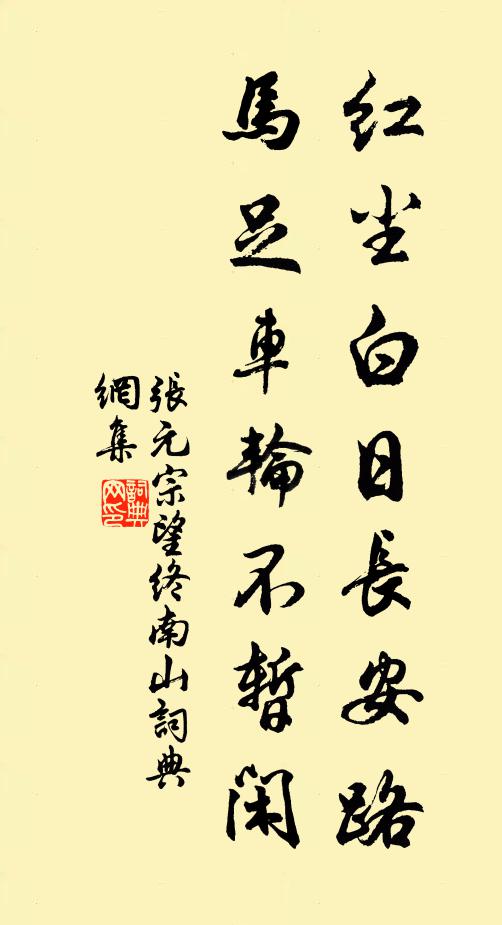 红尘白日長安路
馬足車輪不暫閑
張元宗望終南山詞典
網集
詞典
网印